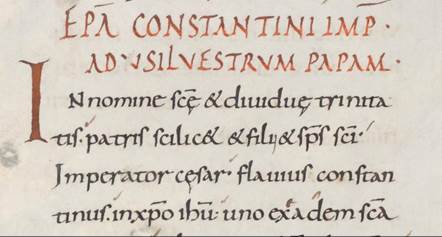 EPĀ CONSTANTINI IMP̄·
AD·VSILVESTRVM PAPAM·
IN nomine scē & diuiduę trinita
tis· patris scilic& & filii & sp̄s sc̄i·
Imperator cęsar· flauius constan
tinus· in xp̄o ih̄u· uno ex eadem sc̄a